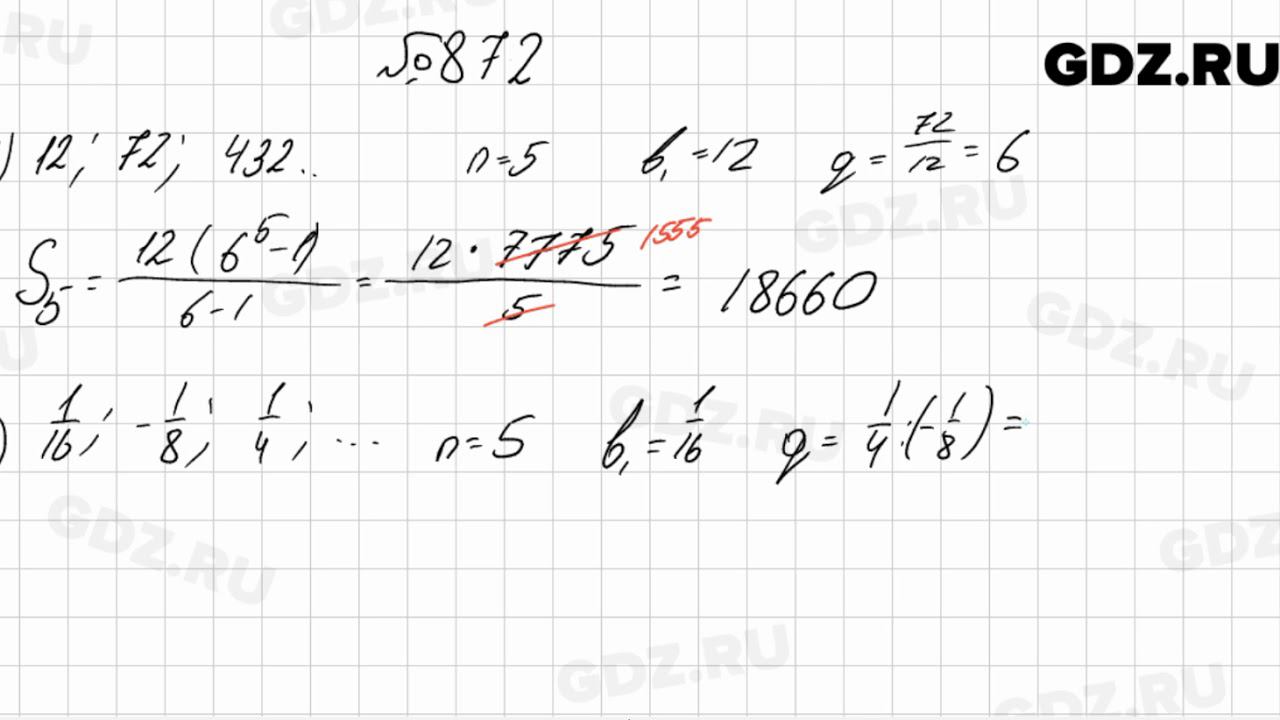 №872
GDZ.RU
) 12; 72; 432.. n=5 b₁=12 q = 72/12 = 6
S₅ = 12(6⁵-1)/6-1 = 12·7775/5 1555 = 18660
) 1/16; -1/8; 1/4; ... n=5 b₁=1/16 q = 1/4:(-1/8) =